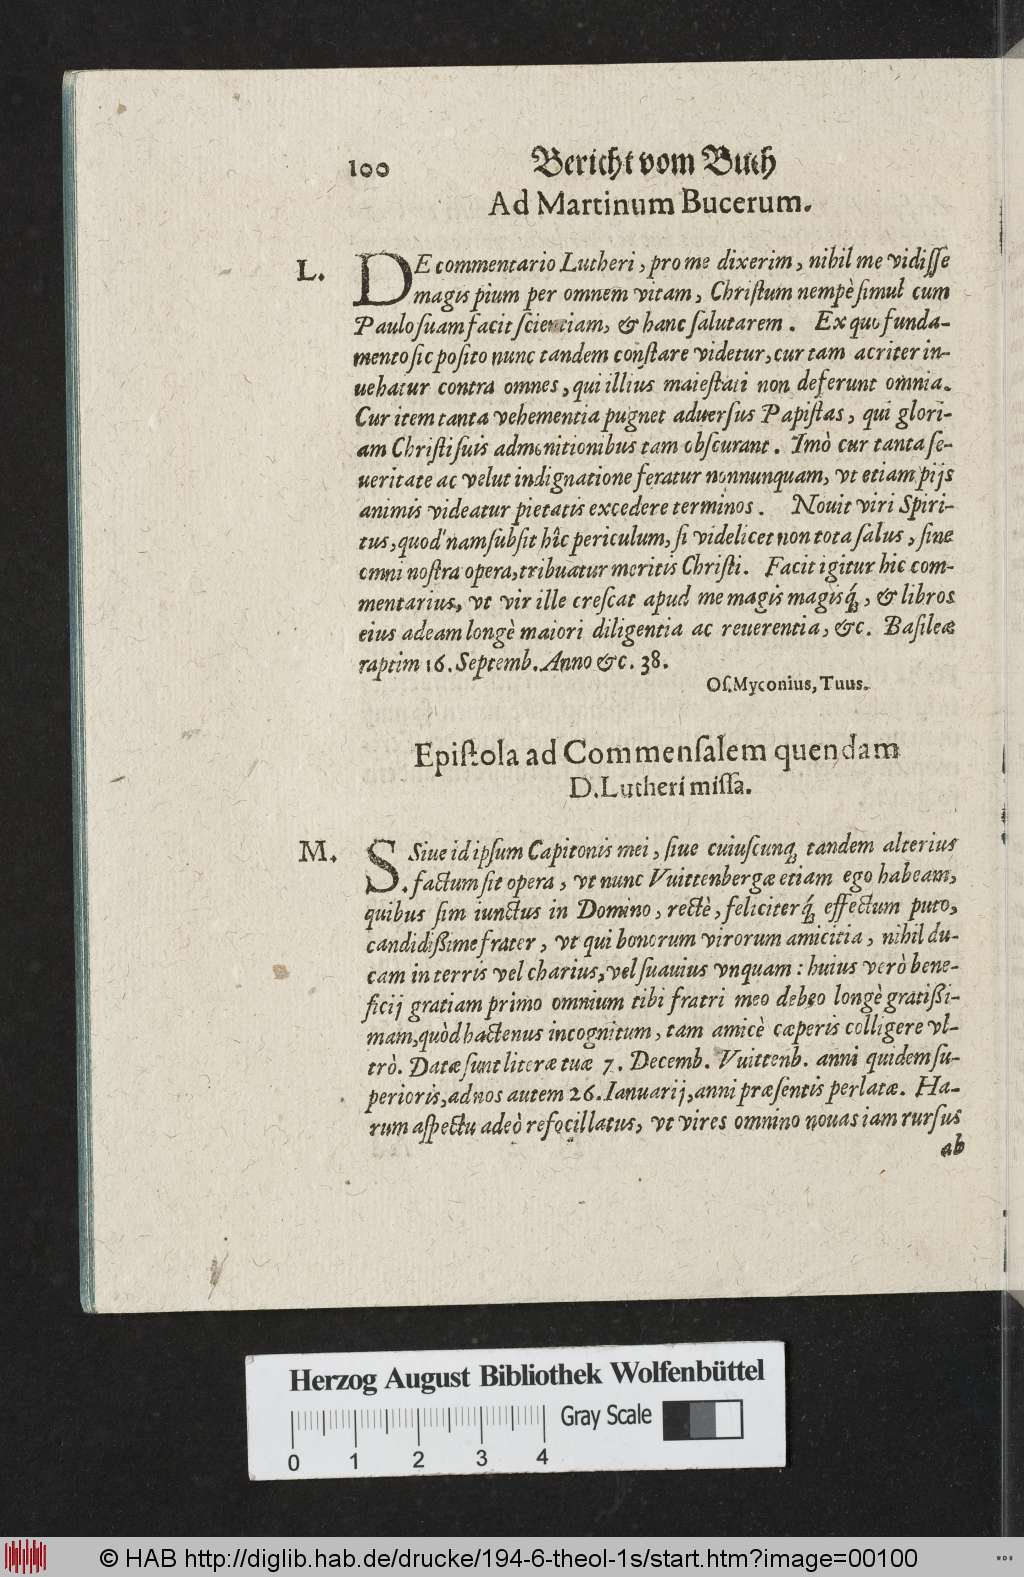 100
Bericht vom Buch
Ad Martinum Bucerum.
L.
DE commentario Lutheri, pro me dixerim, nihil me vidiſſe
magis pium per omnem vitam, Chriſtum nempè ſimul cum
Paulo ſuam facit ſcientiam, & hanc ſalutarem. Ex quo funda-
mento ſic poſito nunc tandem conſtare videtur, cur tam acriter in-
uehatur contra omnes, qui illius maieſtati non deferunt omnia.
Cur item tanta vehementia pugnet aduerſus Papiſtas, qui glori-
am Chriſti ſuis admonitionibus tam obſcurant. Imò cur tanta ſe-
ueritate ac velut indignatione feratur nonnunquam, vt etiam pijs
animis videatur pietatis excedere terminos. Nouit viri Spiri-
tus, quod nam ſubſit hîc periculum, ſi videlicet non tota ſalus, ſine
omni noſtra opera, tribuatur meritis Chriſti. Facit igitur hic com-
mentarius, vt vir ille creſcat apud me magis magisq́;, & libros
eius adeam longè maiori diligentia ac reuerentia, &c. Baſileæ
raptim 16. Septemb. Anno &c. 38.
Oſ. Myconius, Tuus.
Epiſtola ad Commenſalem quendam
D. Lutheri miſſa.
M.
S. Siue id ipſum Capitonis mei, ſiue cuiuſcunq; tandem alterius
factum ſit opera, vt nunc Vuittenbergæ etiam ego habeam,
quibus ſim iunctus in Domino, rectè, feliciterq́; effectum puto,
candidißime frater, vt qui bonorum virorum amicitia, nihil du-
cam in terris vel charius, vel ſuauius vnquam: huius verò bene-
ficij gratiam primo omnium tibi fratri meo debeo longè gratißi-
mam, quòd hactenus incognitum, tam amicè cæperis colligere vl-
trò. Datæ ſunt literæ tuæ 7. Decemb. Vuittenb. anni quidem ſu-
perioris, ad nos autem 26. Ianuarij, anni præſentis perlatæ. Ha-
rum aſpectu adeò refocillatus, vt vires omnino nouas iam rurſus
ab
Herzog August Bibliothek Wolfenbüttel
Gray Scale
0 1 2 3 4
© HAB http://diglib.hab.de/drucke/194-6-theol-1s/start.htm?image=00100